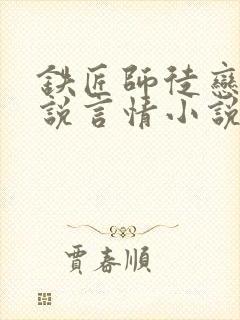 鉄匠師徒戀
說言情小說
賈春順